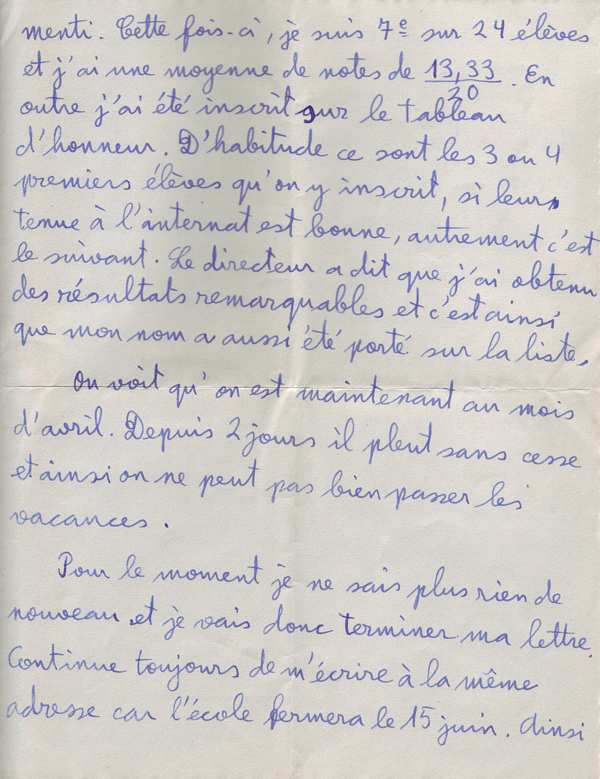 menti. Cette fois-ci, je suis 7e sur 24 élèves
et j'ai une moyenne de notes de 13,33/20. En
outre j'ai été inscrit sur le tableau
d'honneur. D'habitude ce sont les 3 ou 4
premiers élèves qu'on y inscrit, si leur
tenue à l'internat est bonne, autrement c'est
le suivant. Le directeur a dit que j'ai obtenu
des résultats remarquables et c'est ainsi
que mon nom a aussi été porté sur la liste.
On voit qu'on est maintenant au mois
d'avril. Depuis 2 jours il pleut sans cesse
et ainsi on ne peut pas bien passer les
vacances.
Pour le moment je ne sais plus rien de
nouveau et je vais donc terminer ma lettre.
Continue toujours de m'écrire à la même
adresse car l'école fermera le 15 juin. Ainsi